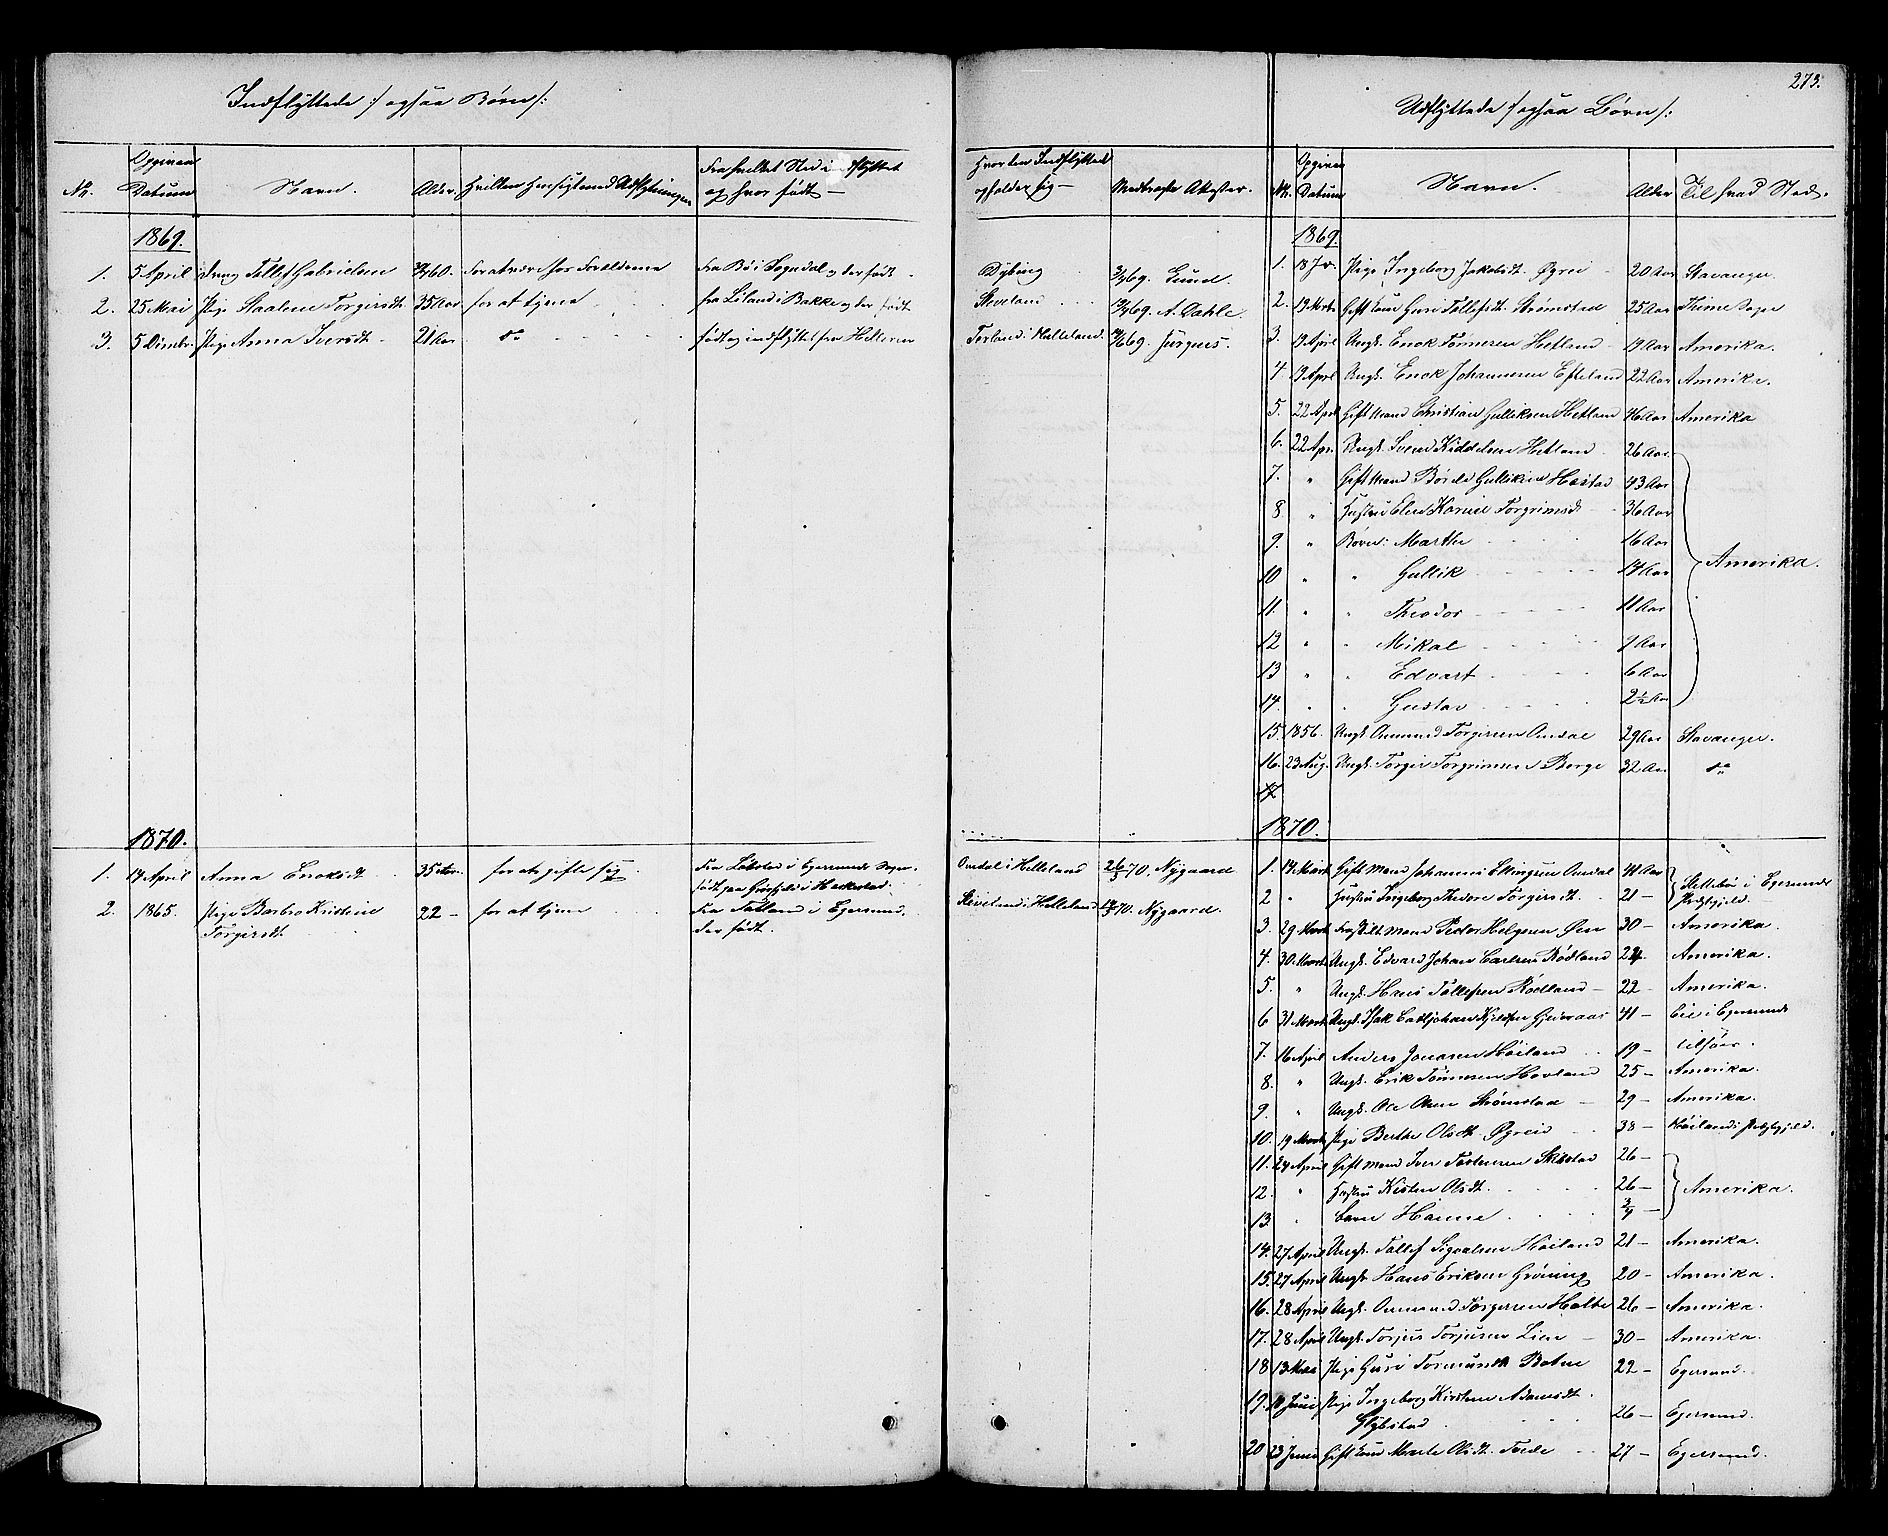 273.
Indflyttede /: ogsaa Børn /:
No. Opgiven Datum Navn. Alder. Hvilken Hensigt med Udflytningen Fra hvilket Sted indflyttet og hvor født — Hvor den Indflyttede opholder sig — Medbragte Attester.
1869.
1. 5 April Dreng Tollef Gabrielsen for at være hos Forældrene Fra Bø i Sogndal og der født Dybing 3/4 69. Gund.
2. 25 Mai Pige Staalene Torgersdt. 35 Aar for at tjene fra Liland i Bakke og der født Skeveland 69. A. Dahle.
3. 5 Dcmbr. Pige Anna Iversdt. 21 Aar do født og indflyttet fra Helleren Terland i Helleland. 69. Jürgens.
1870.
1. 14 April Anna Enoksdt. 35 Aar. for at gifte sig Fra Løbstad i Egersunds Sogn. født paa i Omdal i Helleland 26/3 70. Nygaard
2. 1865. Pige Barbro Kristine Torgersdt. 22 — for at tjene Fra Tatland i Egersund. der født. Skeveland i Helleland 70. Nygaard.
Udflyttede /: ogsaa Børn /:
Nr. Opgiven Datum Navn. Alder Til hvad Sted.
1869.
1. 18 Jr. Pige Ingeborg Jakobsdt. Øgrei 20 Aar Stavanger.
2. 19 Marts Gift Kone Guri Tollefsdt. Strømstad 25 Aar Thime Sogn
3. 19 April Ungk. Enok Tønnesen Hetland 19 Aar Amerika.
4 19 Aprl Ungk. Enok Johannesen Efteland 22 Aar Amerika.
5. 22 Aprl Gift Mand Christian Gulliksen Hetland 46 Aar Amerika
6. 22 Apr. Ungk. Svend Kiddelsen Hetland 26 Aar
7. " Gift Mand Børile Gulliksen Hæstad 43 Aar
8 " Hustru Elen Karine Torgrimsd 36 Aar
9. " Børn: Marthe 16 Aar
10 " " Gullik 14 Aar Amerika.
11. " " Theodor 11 Aar
12 " " Mikal 9 Aar
13 " " Edvart 6 Aar
14. " " Gustav 2½ Aar
15. 1856. Ungk. Ommund Torgersen Omdal 29 Aar Stavanger.
16. 23 Aug. Ungk. Torger Torgrimsen Berge 32 Aar do
17
1870.
1. 14 Marts Gift Mand Johannes Ellingsen Omdal 41 Aar
2 " Hustru Ingeborg Thedore Torgersdt. 21 — i Egersunds Præstgjeld.
3. 29 Marts Fraskilt Mand Peder Helgesen Øen 30 — Amerika.
4. 30. Marts Ungk. Edvard Johan Carlsen Rødland 24 Amerika.
5. " Ungk. Hans Tollefsen Rødland — 22 — Amerika.
6 31 Marts Ungk. Isak Carljohan Gjeteraas 41 — Eie i Egersund
7. 16 April Anders Jonasen Høiland 19 — tilsøes.
8. " Ungk. Erik Tønnesen Hovland 25 — Amerika.
9. " Ungk. Ole Olsen Strømstad — 29 — Amerika.
10. 19 Marts Pige Berthe Olsdt. Øgreid 38 — Høilands Præstgjeld.
11. 24 April Gift Mand Iver Tostensen Skaastad 26 —
12. " Hustru Kisten Olsdt. 26 — Amerika.
13 " barn Hanne 3/4 —
14. 27 April Ungk. Tollef Sigvalsen Høiland 21 — Amerika.
15. 27 April Ungk. Hans Eriksen Grøning 20 — Amerika.
16. 28 April Ungk. Ommund Torgersen Holte 26 — Amerika.
17. 28 April Ungk. Torjus Torjusen Lien — 30 — Amerika.
18 13 Mai Pige Guri Tormundsd. Botne 22 — Egersund.
19. 10 Juni Pige Ingeborg Kirstine Adamsdt.
Glybstad 26 — Egersund.
20 23 Juni Gift Kone Marte Olsdt. Tvede 27 — Egersund.